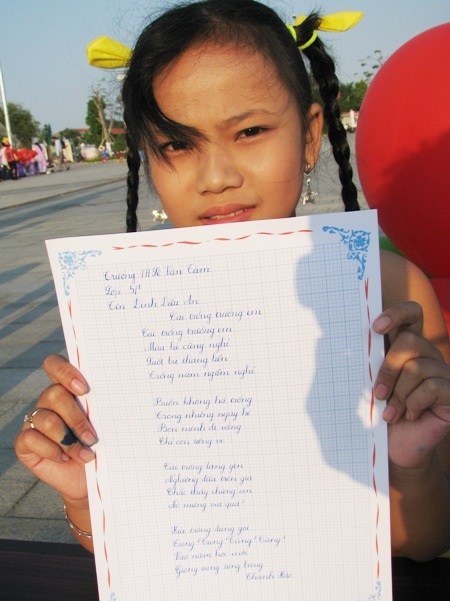 Trường TH Lê Văn Tám
Lớp: 5/1
Tên
Cái trống trường em
Cái trống trường em
Mùa hè cũng nghỉ
Suốt ba tháng liền
Trống nằm ngẫm nghĩ
Buồn không hả trống
Trong những ngày hè
Bọn mình đi vắng
Chỉ còn tiếng ve
Cái trống lặng yên
Nghiêng đầu trên giá
Chắc thấy chúng em
Nó mừng vui quá!
Kìa trống đang gọi
Tùng! Tùng! Tùng! Tùng!
Vào năm học mới
Giọng vang tưng bừng
Thanh Hào